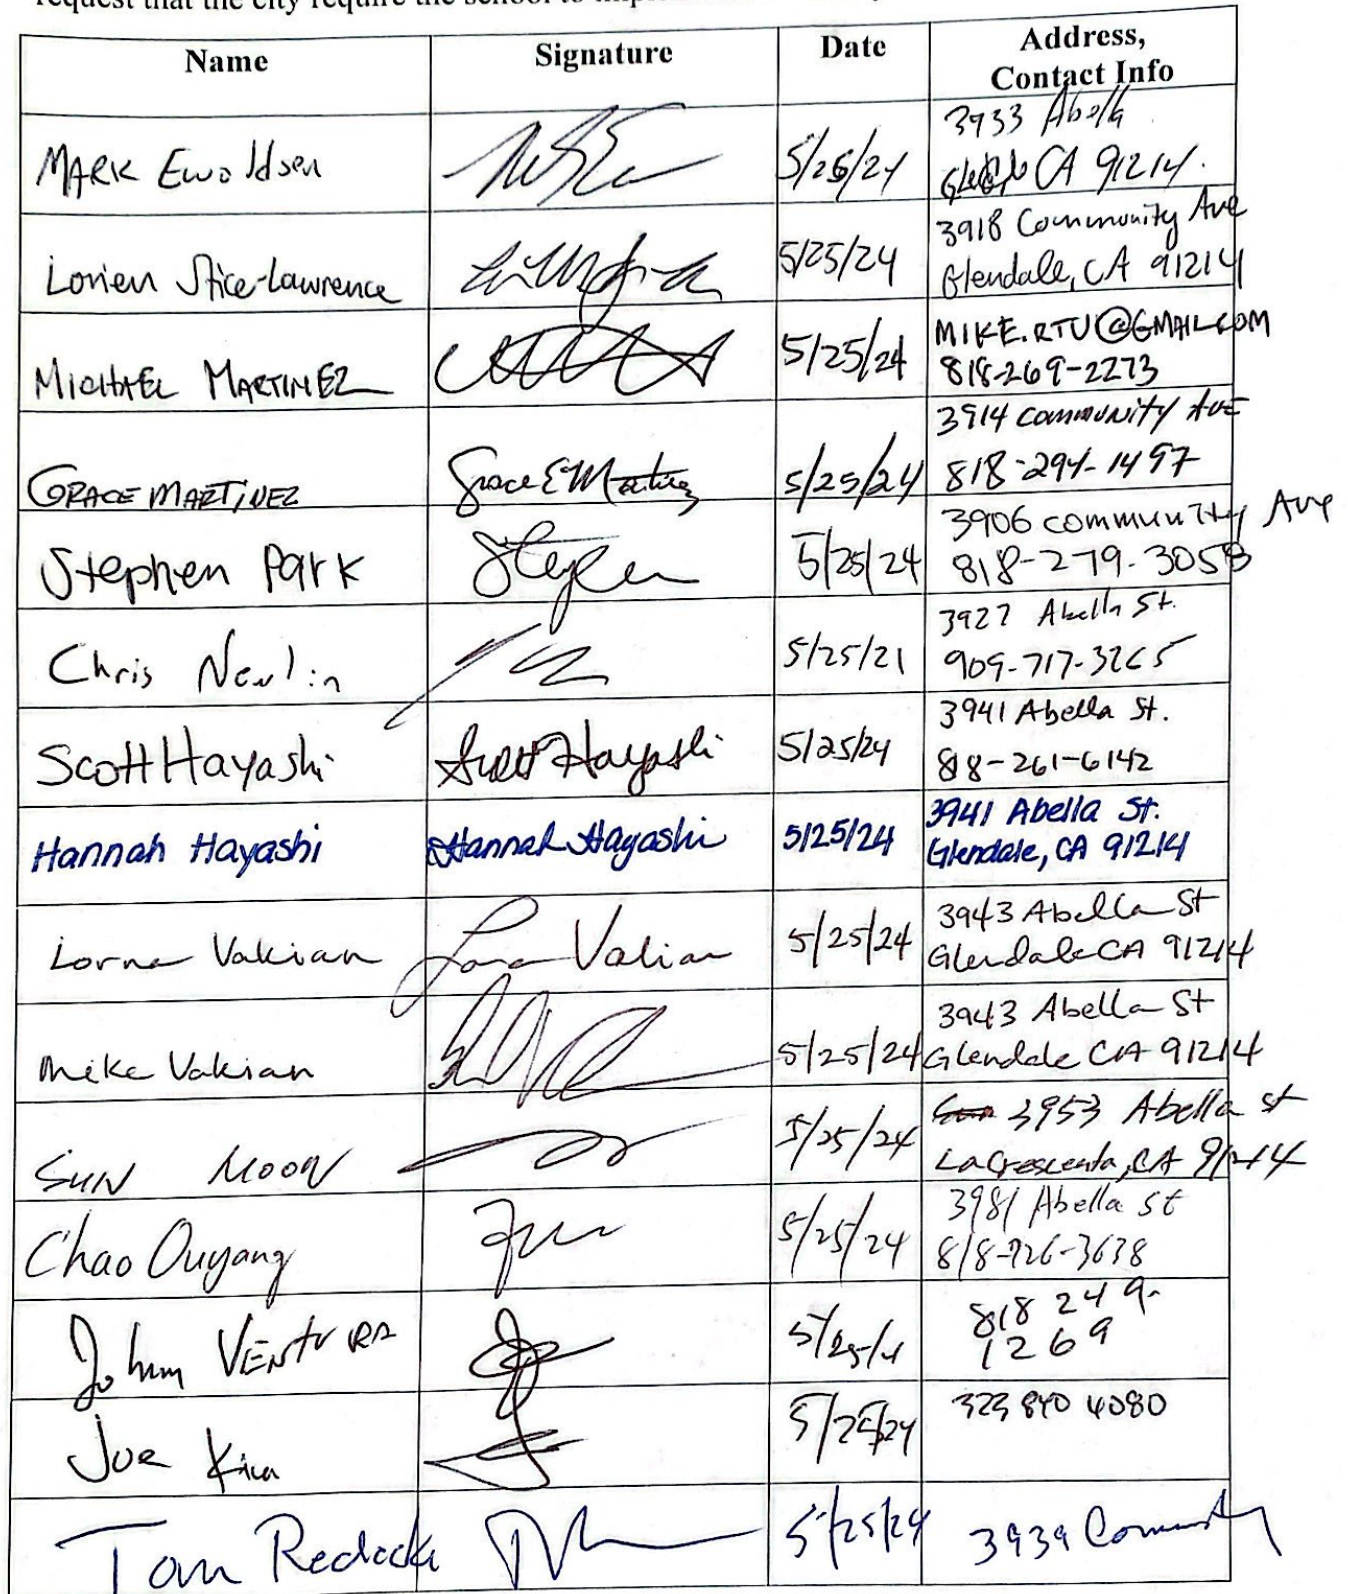 request that the city require the school to
Name Signature Date Address,
Contact Info
MARK Ewoldsen 5/26/24 3933 Abella
Glendale CA 91214.
Lorien Stice-Lawrence 5/25/24 3918 Community Ave
Glendale, CA 91214
MICHAEL MARTINEZ 5/25/24 MIKE.RTU@GMAIL.COM
818-269-2273
GRACE MARTINEZ Grace E Martinez 5/25/24 3914 community Ave
818-294-1497
Stephen Park Stephen 5/25/24 3906 community Ave
818-279-3058
Chris Newlin 5/25/21 3927 Abella St.
909-717-3265
Scott Hayashi Scott Hayashi 5/25/24 3941 Abella St.
818-261-6142
Hannah Hayashi Hannah Hayashi 5/25/24 3941 Abella St.
Glendale, CA 91214
Lorna Vakian Lorna Vakian 5/25/24 3943 Abella St
Glendale CA 91214
Mike Vakian 5/25/24 3943 Abella St
Glendale CA 91214
SUN MOON 5/25/24 3953 Abella st
La Crescenta, CA 91214
Chao Ouyang 5/25/24 3981 Abella st
818-726-3638
John VENTURA 818 249-
1269
Joe Kim 5/25/24 323 840 4080
Tom 5/25/24 3939 Community